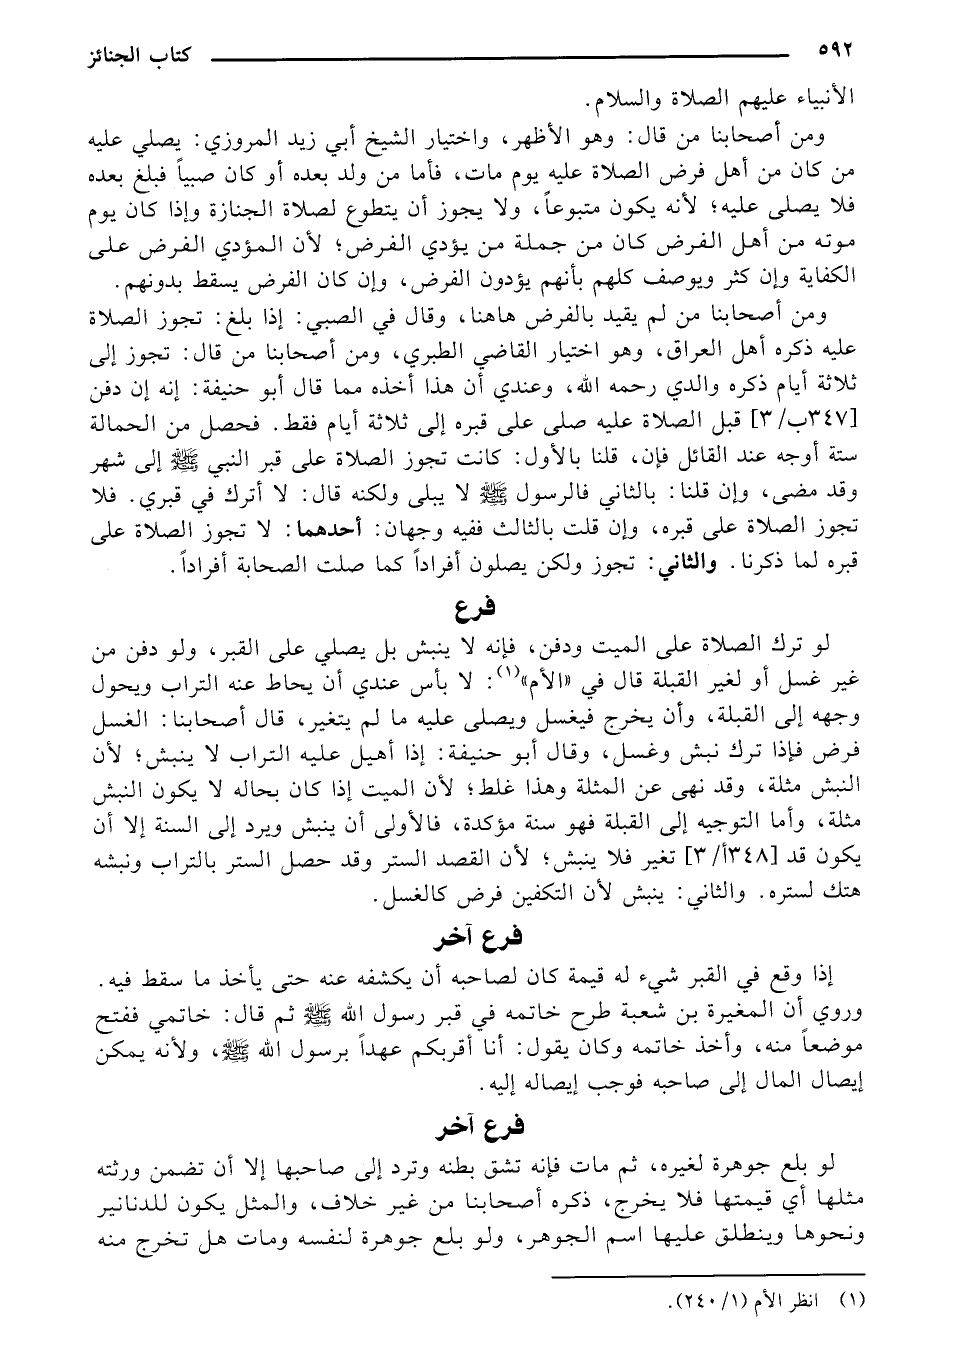 ٥٩٢ كتاب الجنائز
الأنبياء عليهم الصلاة والسلام.
ومن أصحابنا من قال: وهو الأظهر، واختيار الشيخ أبي زيد المروزي: يصلي عليه
من كان من أهل فرض الصلاة عليه يوم مات، فأما من ولد بعده أو كان صبياً فبلغ بعده
فلا يصلى عليه؛ لأنه يكون متبوعاً، ولا يجوز أن يتطوع لصلاة الجنازة وإذا كان يوم
موته من أهل الفرض كان من جملة من يؤدي الفرض؛ لأن المؤدي الفرض على
الكفاية وإن كثر ويوصف كلهم بأنهم يؤدون الفرض، وإن كان الفرض يسقط بدونهم.
ومن أصحابنا من لم يقيد بالفرض هاهنا، وقال في الصبي: إذا بلغ: تجوز الصلاة
عليه ذكره أهل العراق، وهو اختيار القاضي الطبري، ومن أصحابنا من قال: تجوز إلى
ثلاثة أيام ذكره والدي رحمه الله، وعندي أن هذا أخذه مما قال أبو حنيفة: إنه إن دفن
[٣٤٧ب/ ٣] قبل الصلاة عليه صلى على قبره إلى ثلاثة أيام فقط. فحصل من الحمالة
ستة أوجه عند القائل فإن، قلنا بالأول: كانت تجوز الصلاة على قبر النبي ﷺ إلى شهر
وقد مضى، وإن قلنا: بالثاني فالرسول ﷺ لا يبلى ولكنه قال: لا أترك في قبري. فلا
تجوز الصلاة على قبره، وإن قلت بالثالث ففيه وجهان: أحدهما: لا تجوز الصلاة على
قبره لما ذكرنا. والثاني: تجوز ولكن يصلون أفراداً كما صلت الصحابة أفراداً.
فرع
لو ترك الصلاة على الميت ودفن، فإنه لا ينبش بل يصلي على القبر، ولو دفن من
غير غسل أو لغير القبلة قال في «الأم»(١): لا بأس عندي أن يحاط عنه التراب ويحول
وجهه إلى القبلة، وأن يخرج فيغسل ويصلى عليه ما لم يتغير، قال أصحابنا: الغسل
فرض فإذا ترك نبش وغسل، وقال أبو حنيفة: إذا أهيل عليه التراب لا ينبش؛ لأن
النبش مثلة، وقد نهى عن المثلة وهذا غلط؛ لأن الميت إذا كان بحاله لا يكون النبش
مثلة، وأما التوجيه إلى القبلة فهو سنة مؤكدة، فالأولى أن ينبش ويرد إلى السنة إلا أن
يكون قد [٣٤٨أ/ ٣] تغير فلا ينبش؛ لأن القصد الستر وقد حصل الستر بالتراب ونبشه
هتك لستره. والثاني: ينبش لأن التكفين فرض كالغسل.
فرع آخر
إذا وقع في القبر شيء له قيمة كان لصاحبه أن يكشفه عنه حتى يأخذ ما سقط فيه.
وروي أن المغيرة بن شعبة طرح خاتمه في قبر رسول الله ﷺ ثم قال: خاتمي ففتح
موضعاً منه، وأخذ خاتمه وكان يقول: أنا أقربكم عهداً برسول الله ﷺ، ولأنه يمكن
إيصال المال إلى صاحبه فوجب إيصاله إليه.
فرع آخر
لو بلع جوهرة لغيره، ثم مات فإنه تشق بطنه وترد إلى صاحبها إلا أن تضمن ورثته
مثلها أي قيمتها فلا يخرج، ذكره أصحابنا من غير خلاف، والمثل يكون للدنانير
ونحوها وينطلق عليها اسم الجوهر، ولو بلع جوهرة لنفسه ومات هل تخرج منه
(١) انظر الأم (١/ ٢٤٠).